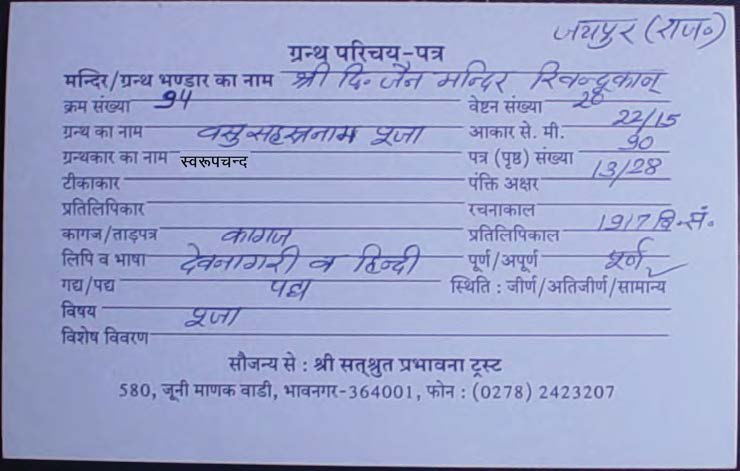 जयपुर (राज॰)
ग्रन्थ परिचय-पत्र
मन्दिर/ग्रन्थ भण्डार का नाम श्री दि॰ जैन मन्दिर खिन्दूकान्
क्रम संख्या 94 वेष्टन संख्या 28
ग्रन्थ का नाम वसुसहस्रनाम पूजा आकार से. मी. 22/15
ग्रन्थकार का नाम स्वरूपचन्द पत्र (पृष्ठ) संख्या 90
टीकाकार पंक्ति अक्षर 13/28
प्रतिलिपिकार रचनाकाल
कागज/ताड़पत्र कागज प्रतिलिपिकाल 1917 वि॰सं॰
लिपि व भाषा देवनागरी व हिन्दी पूर्ण/अपूर्ण पूर्ण
गद्य/पद्य पद्य स्थिति : जीर्ण/अतिजीर्ण/सामान्य ✓
विषय पूजा
विशेष विवरण
सौजन्य से : श्री सत्श्रुत प्रभावना ट्रस्ट
580, जूनी माणक वाडी, भावनगर-364001, फोन : (0278) 2423207